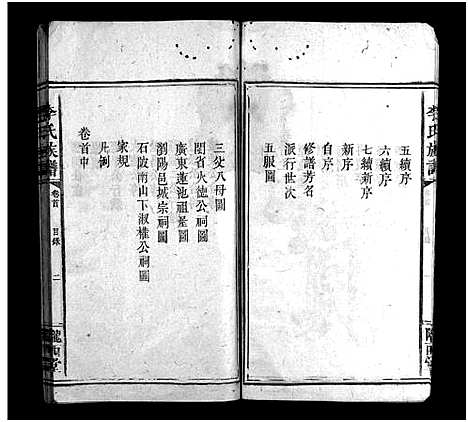 李氏族譜
五續序
六續序
七續新序
新序
自序
修譜芳名
派行世次
五服圖
隴西堂
三父八母圖
閩省火德公祠圖
廣東蓮池祖塋圖
瀏陽邑城宗祠圖
石陂南山下淑權公祠圖
家規
凡例
卷首中
李氏族譜
卷首
目錄
二
隴西堂